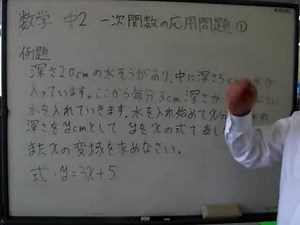 数学 中2 一次関数の応用問題①
例題
深さ20cmの水そうがあり、中に深さ5cm
入っています。ここから毎分3cm深さが
水を入れていきます。水を入れ始めてx分
深さをycmとして yをxの式で表し
またxの変域を求めなさい。
式・y=3x+5